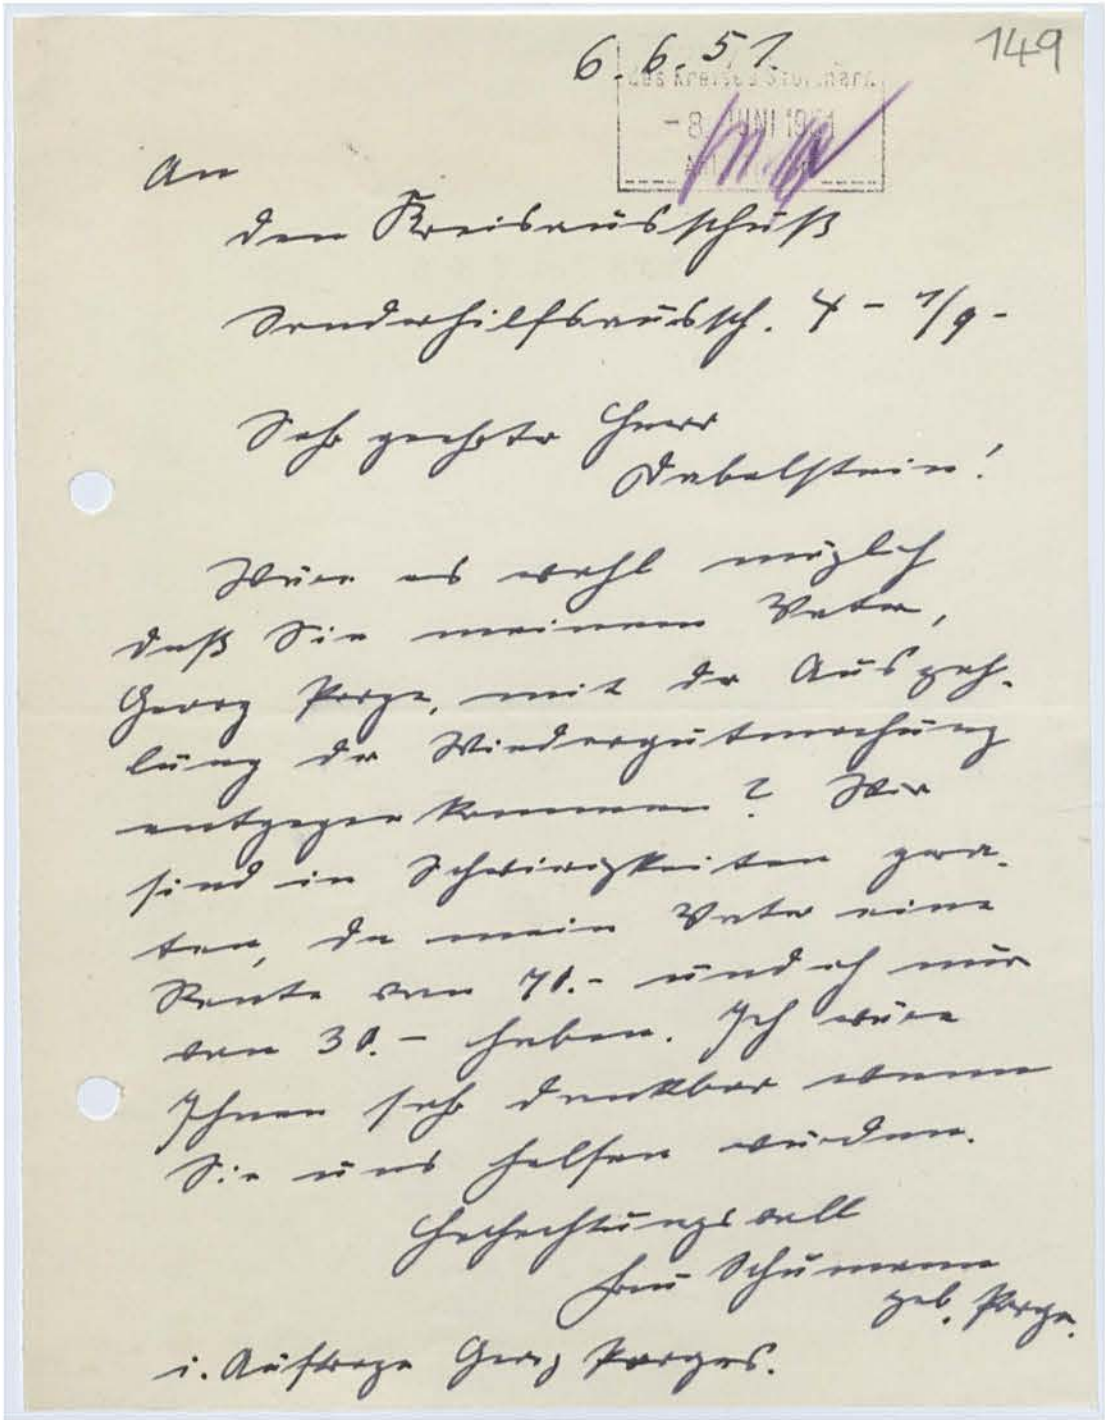 149
6.6.51.
des Kreises Stormarn
- 8. JUNI 1951
An
den Kreisausschuß
Sonderhilfsaussch. 4 - 1/9 -
Sehr geehrter Herr
Dabelstein!
Wäre es wohl möglich
daß Sie meinem Vater,
Georg Porge, mit der Auszah-
lung der Wiedergutmachung
entgegen kommen? Wir
sind in Schwierigkeiten gera-
ten, da mein Vater eine
Rente von 70.- und ich nur
von 30.- haben. Ich wäre
Ihnen sehr dankbar wenn
Sie uns helfen würden.
Hochachtungsvoll
Frau Schumann
geb. Porge.
i. Auftrage Georg Porges.